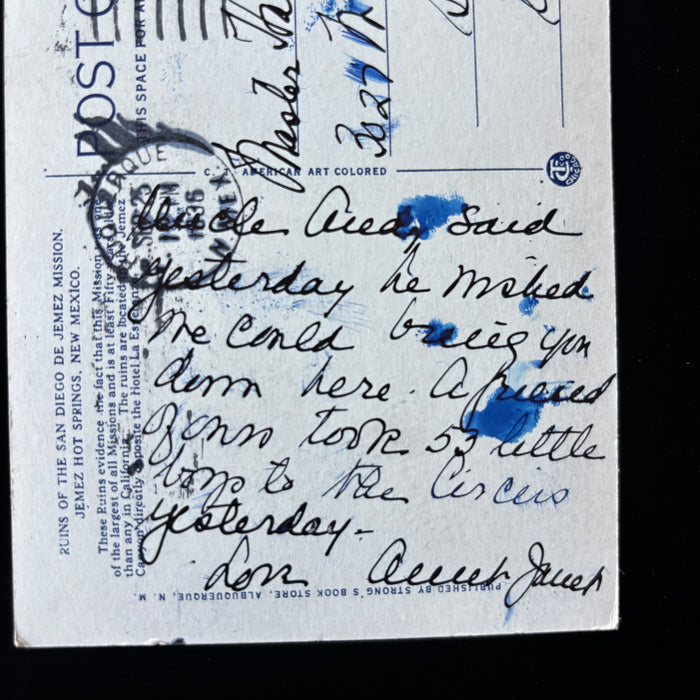 Uncle Andy said
yesterday he wished
we could bring you
down here. A friend
of ours took 53 little
boys to the Circus
yesterday-
Love Aunt Janet
POST C
THIS SPACE FOR A
Master
3027
C. T. AMERICAN ART COLORED
ALBUQUERQUE
SEP 25
1936
N. MEX.
RUINS OF THE SAN DIEGO DE JEMEZ MISSION.
JEMEZ HOT SPRINGS, NEW MEXICO.
These Ruins evidence the fact that this Mission was one
of the largest of all Missions and is at least Fifty Years
than any in California. The ruins are located in Jemez
Canyon directly opposite the Hotel La Esperan
PUBLISHED BY STRONG'S BOOK STORE, ALBUQUERQUE, N. M.